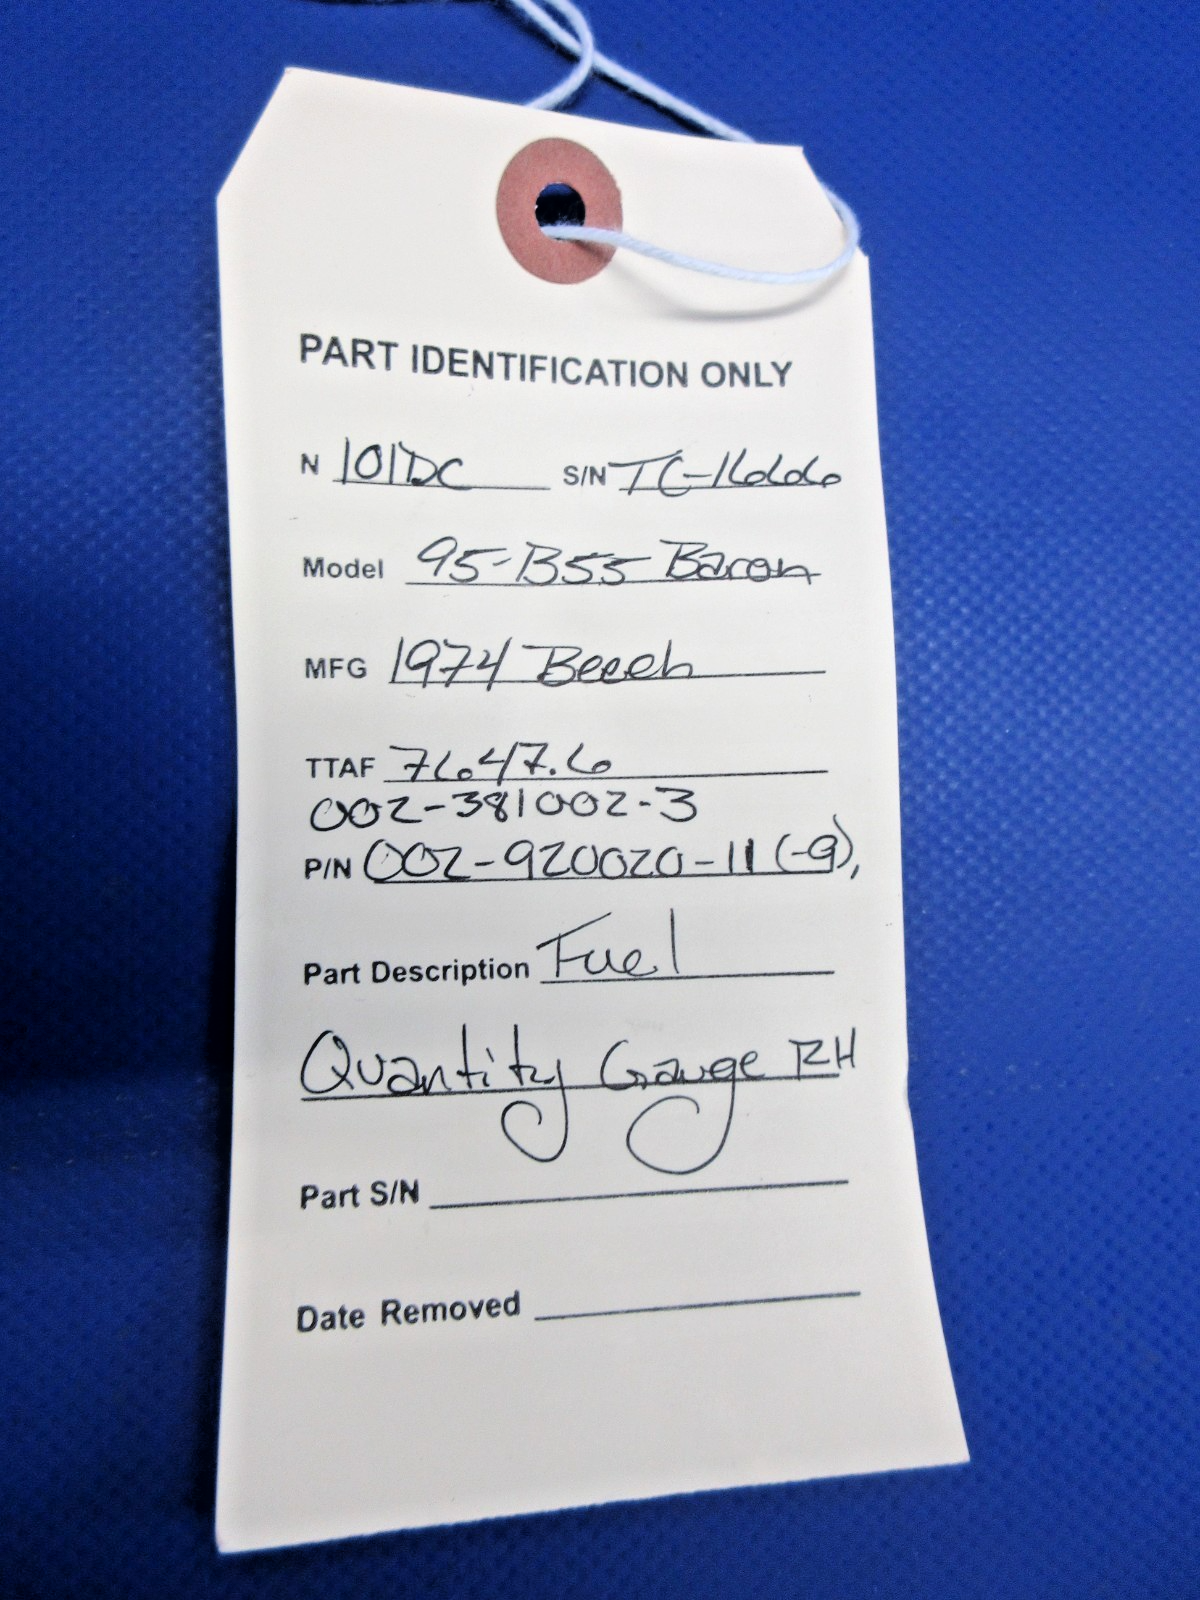 PART IDENTIFICATION ONLY
N 101DC S/N TC-1666
Model 95-B55 Baron
MFG 1974 Beech
TTAF 7647.6
002-381002-3
P/N 002-920020-11 (-9),
Part Description Fuel
Quantity Gauge RH
Part S/N
Date Removed